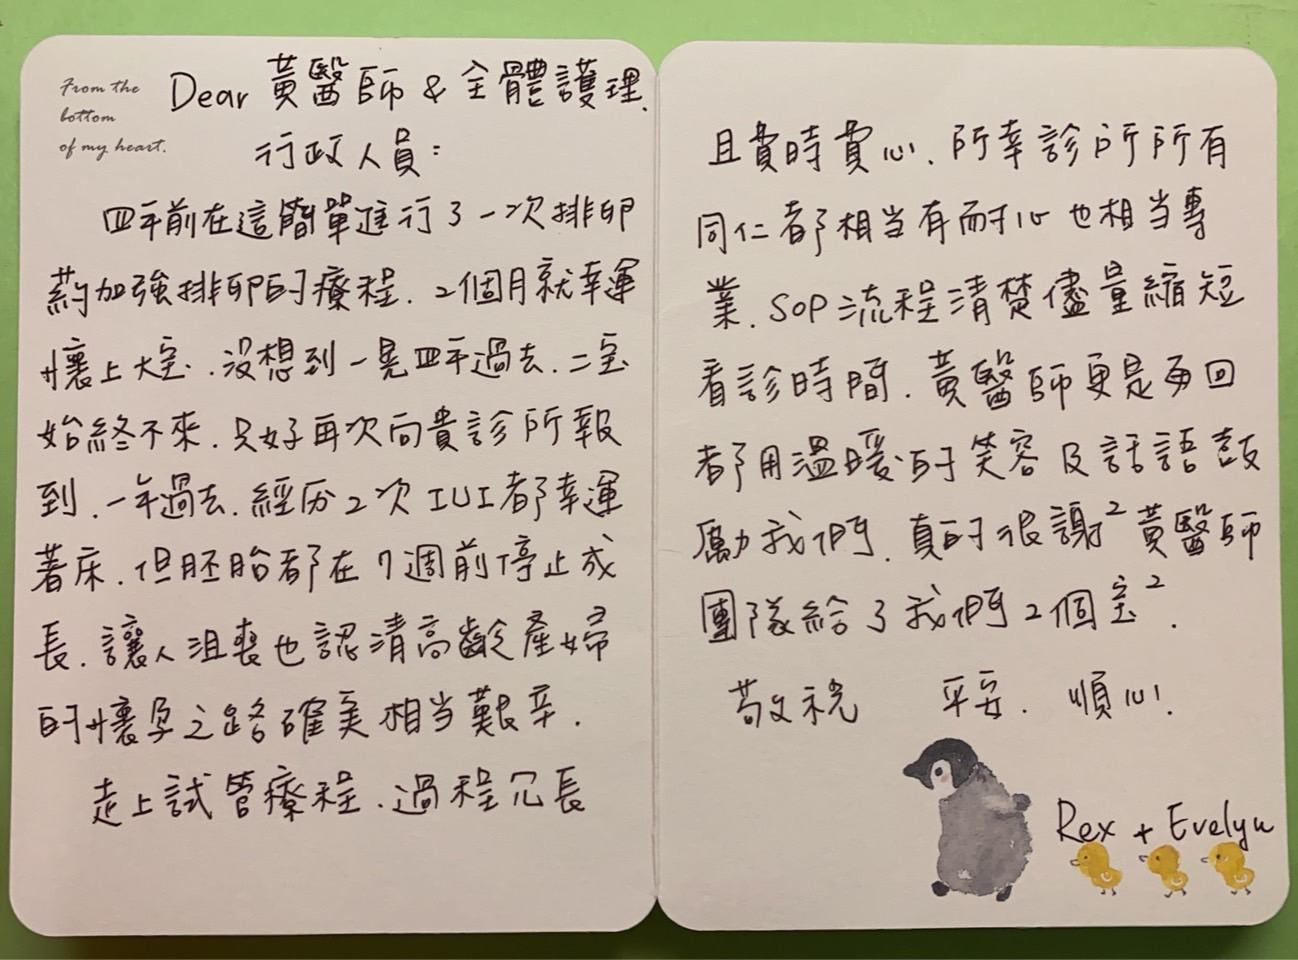 From the
bottom
of my heart.
Dear 黃醫師 & 全體護理、
行政人員：
四年前在這簡單進行了一次排卵
葯加強排卵的療程、2個月就幸運
懷上大宝、沒想到一晃四年過去、二宝
始終不來、只好再次向貴診所報
到、一年過去、經历2次IUI都幸運
著床、但胚胎都在7週前停止成
長、讓人沮喪也認清高齡產婦
的懷孕之路確實相当艱辛.
走上試管療程、過程冗長
且費時費心、所幸診所所有
同仁都相当有耐心也相当專
業、SOP流程清楚儘量縮短
看診時間、黃醫師更是每回
都用溫暖的笑容及話語鼓
勵我們、真的很謝² 黃醫師
團隊給了我們2個宝².
敬祝 平安、順心.
Rex + Evelyn